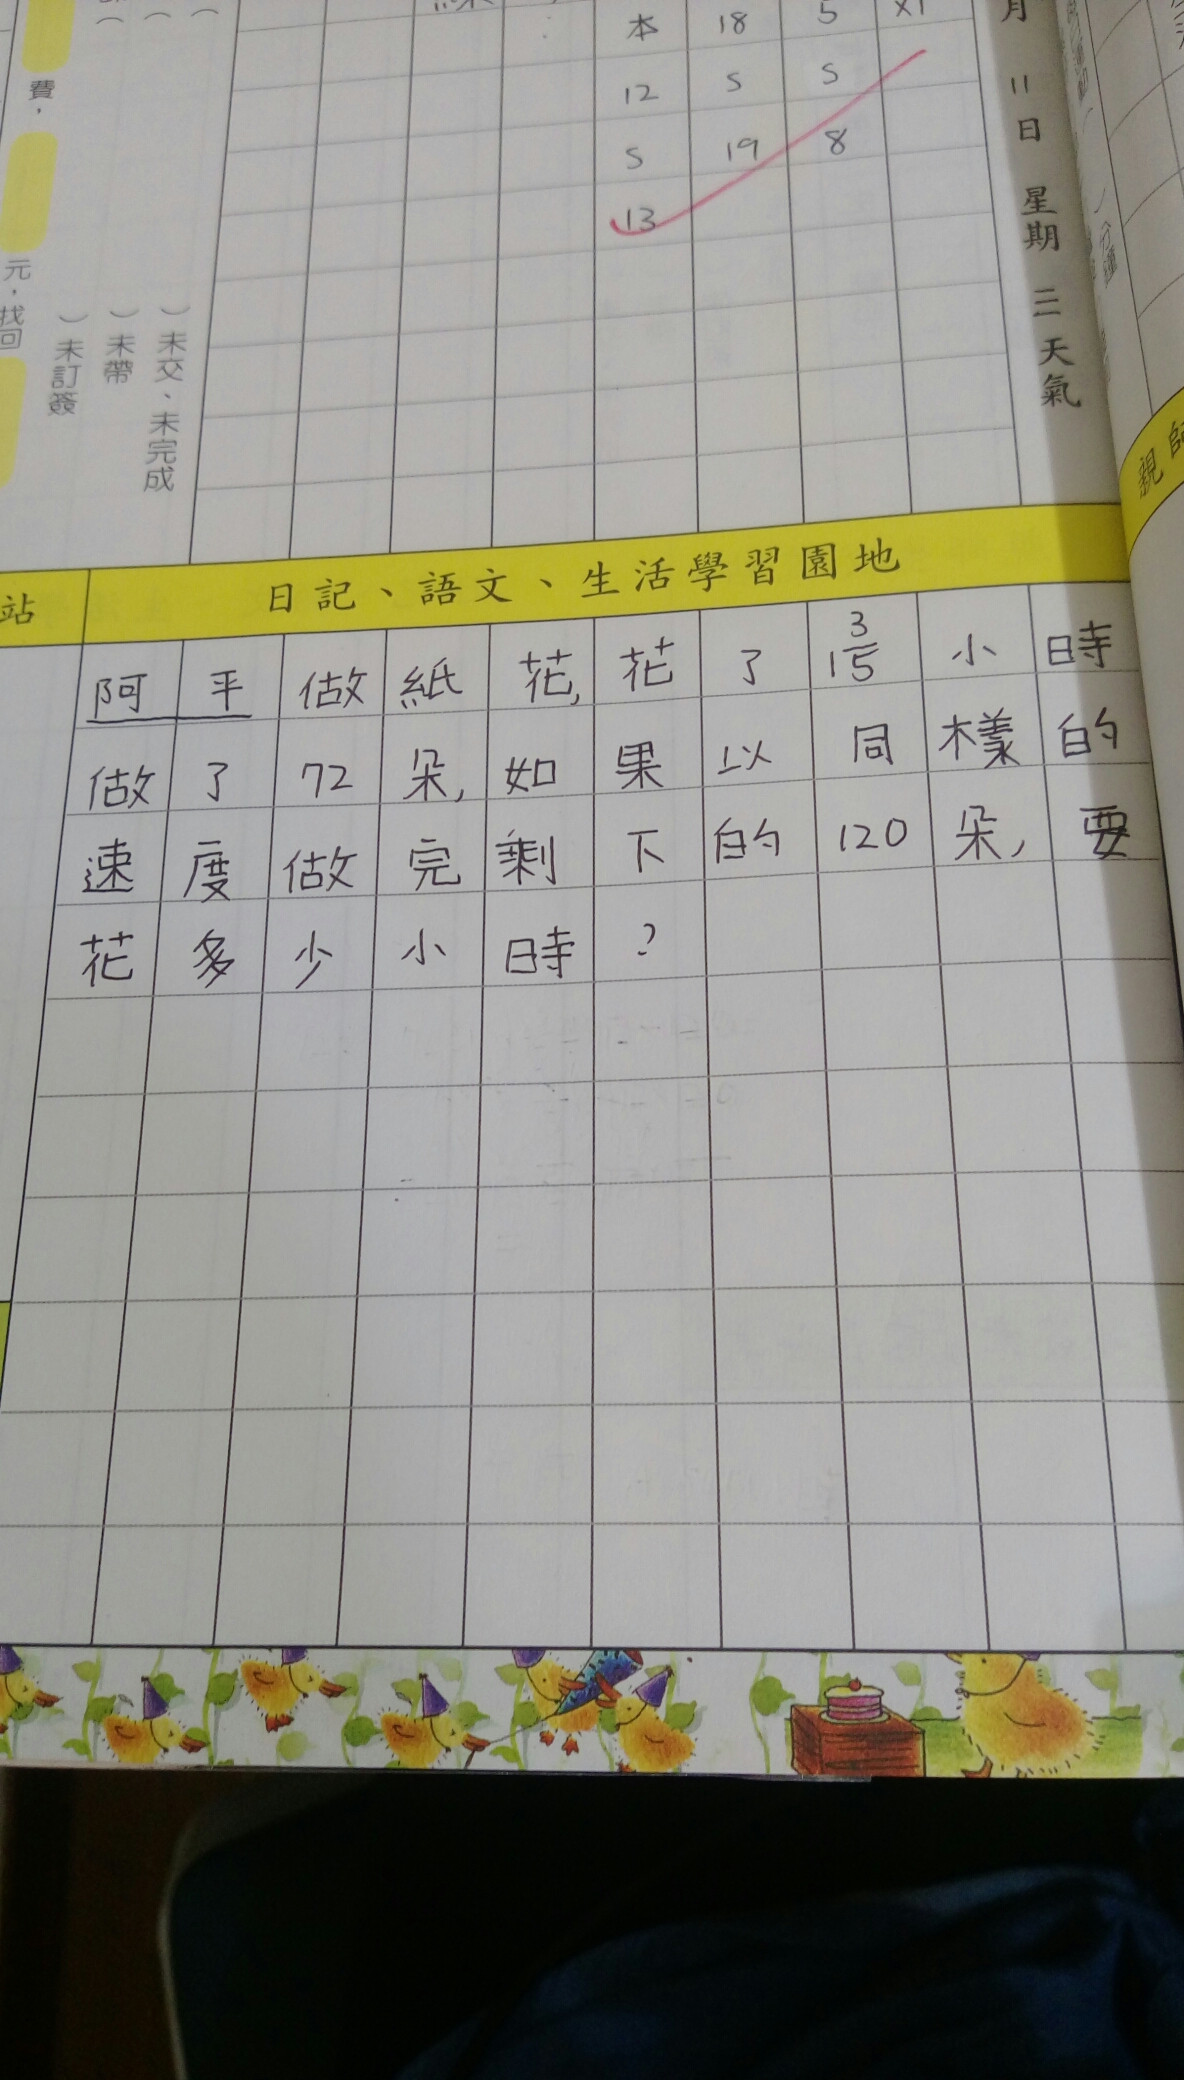 本 18 5
12 5 5
5 19 8
13
月 11 日 星期 三 天氣
費，
元，找回
）未訂簽
）未帶
）未交、未完成
親師
站
日記、語文、生活學習園地
阿平做紙花,花了1 3/5小時
做了72朵,如果以同樣的
速度做完剩下的120朵,要
花多少小時?